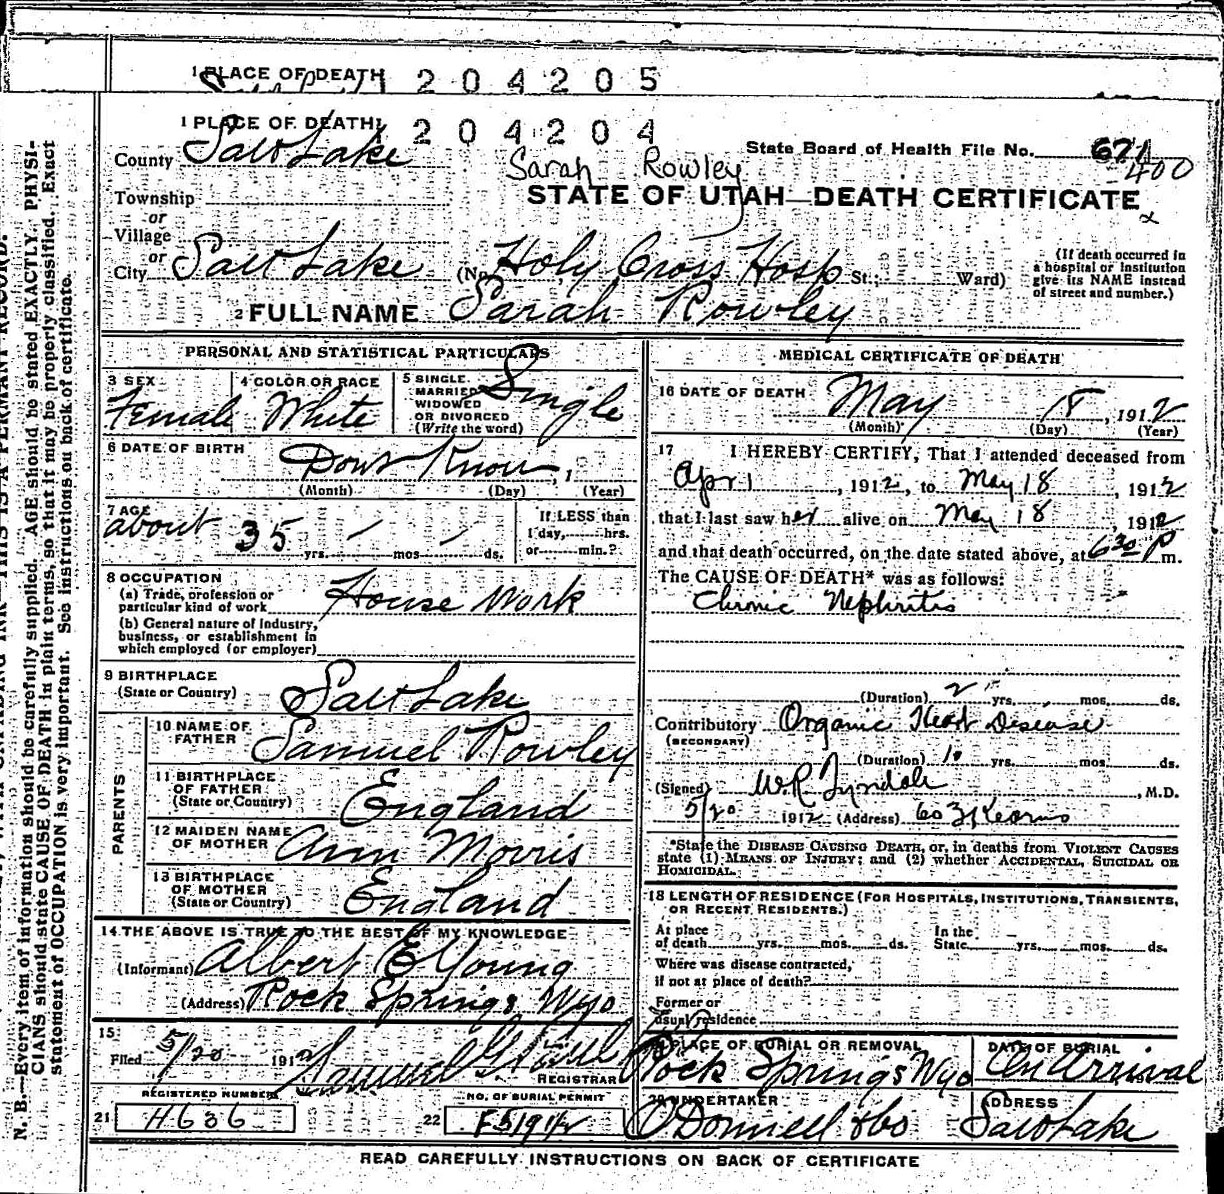 1 PLACE OF DEATH 2 0 4 2 0 5
1 PLACE OF DEATH 2 0 4 2 0 4
County Salt Lake
State Board of Health File No. 671
400
Sarah Rowley
Township
STATE OF UTAH—DEATH CERTIFICATE
or
Village
or
City Salt Lake (No. Holy Cross Hosp St.; Ward)
(If death occurred in
a hospital or institution
give its NAME instead
of street and number.)
2 FULL NAME Sarah Rowley
PERSONAL AND STATISTICAL PARTICULARS
3 SEX
Female
4 COLOR OR RACE
White
5 SINGLE
MARRIED
WIDOWED
OR DIVORCED
(Write the word)
Single
6 DATE OF BIRTH Dont Know, 1
(Month) (Day) (Year)
7 AGE
about 35 yrs. mos. ds.
If LESS than
1 day, hrs.
or min.?
8 OCCUPATION
(a) Trade, profession or
particular kind of work House Work
(b) General nature of industry,
business, or establishment in
which employed (or employer)
9 BIRTHPLACE
(State or Country) Salt Lake
PARENTS
10 NAME OF
FATHER Samuel Rowley
11 BIRTHPLACE
OF FATHER
(State or Country) England
12 MAIDEN NAME
OF MOTHER Ann Morris
13 BIRTHPLACE
OF MOTHER
(State or Country) England
14 THE ABOVE IS TRUE TO THE BEST OF MY KNOWLEDGE
(Informant) Albert E Young
(Address) Rock Springs Wyo
15
Filed 5/20 1912 Samuel G
REGISTRAR
REGISTERED NUMBER
21 H636
NO. OF BURIAL PERMIT
22
MEDICAL CERTIFICATE OF DEATH
16 DATE OF DEATH May 18, 1912
(Month) (Day) (Year)
17 I HEREBY CERTIFY, That I attended deceased from
Apr 1, 1912, to May 18, 1912
that I last saw her alive on May 18, 1912
and that death occurred, on the date stated above, at 6 30 P m.
The CAUSE OF DEATH* was as follows:
Chronic Nephritis
(Duration) 2 yrs. mos. ds.
Contributory Organic Heart Disease
(SECONDARY)
(Duration) 10 yrs. mos. ds.
(Signed) W.R. Tyndale, M.D.
5/20 1912 (Address) 603 Kearns
*State the DISEASE CAUSING DEATH, or, in deaths from VIOLENT CAUSES
state (1) MEANS OF INJURY; and (2) whether ACCIDENTAL, SUICIDAL OR
HOMICIDAL.
18 LENGTH OF RESIDENCE (FOR HOSPITALS, INSTITUTIONS, TRANSIENTS,
OR RECENT RESIDENTS.)
At place
of death yrs. mos. ds.
In the
State yrs. mos. ds.
Where was disease contracted,
if not at place of death?
Former or
usual residence
19 PLACE OF BURIAL OR REMOVAL
Rock Springs Wyo
DATE OF BURIAL
On Arrival
20 UNDERTAKER
O'Donnell & Co
ADDRESS
Salt Lake
READ CAREFULLY INSTRUCTIONS ON BACK OF CERTIFICATE
N. B.—Every item of information should be carefully supplied. AGE should be stated EXACTLY. PHYSI-
CIANS should state CAUSE OF DEATH in plain terms, so that it may be properly classified. Exact
statement of OCCUPATION is very important. See instructions on back of certificate.